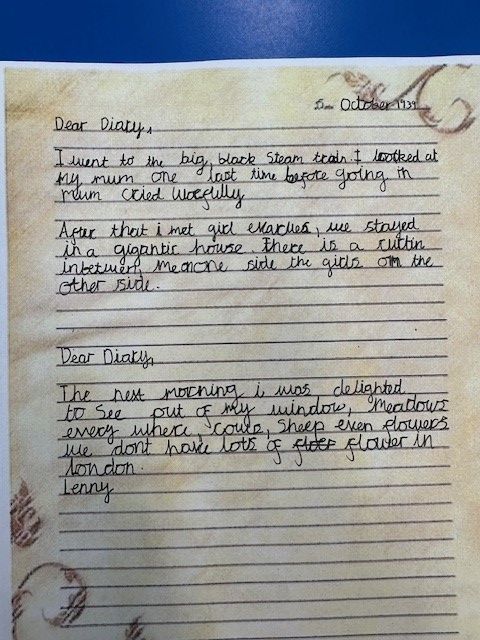 5 October 1939
Dear Diary,
I went to the big, black Steam train. I looked at
My mum one last time before going in
mum cried woefully
After that i met girl evacues, we stayed
in a gigantic house. There is a curtin
inbetween, me on one side the girls on the
other side.
Dear Diary,
The next morning i was delighted
to See out of my window, Meadows
every where, cows, Sheep even flowers
we dont have lots of flower in
london.
Lenny